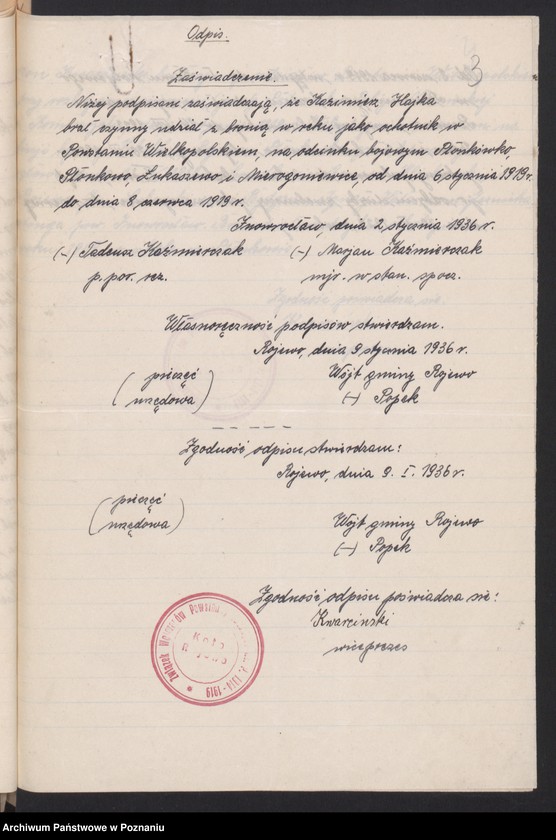 Odpis.
3
Zaświadczenie.
Niżej podpisani zaświadczają, że Kazimierz Hajka
brał czynny udział z bronią w ręku jako ochotnik w
Powstaniu Wielkopolskiem, na odcinku bojowym Płonkówko,
Płonkowo Łukaszewo i Mierogoniewice, od dnia 6 stycznia 1919r.
do dnia 8 czerwca 1919 r.
Inowrocław, dnia 2 stycznia 1936 r.
(-) Tadeusz Kaźmierczak (-) Marjan Kaźmierczak
p. por. rez. mjr. w stan. spocz.
Własnoręczność podpisów stwierdzam.
Rojewo, dnia 9 stycznia 1936 r.
(pieczęć Wójt gminy Rojewo
urzędowa) (-) Popek
Zgodność odpisu stwierdzam:
Rojewo, dnia 9. I. 1936 r.
(pieczęć
urzędowa) Wójt gminy Rojewo
(-) Popek
Zgodność odpisu poświadcza się:
Kwarciński
wiceprezes
Związek Weteranów Powstań 1914-1919
Koło
Archiwum Państwowe w Poznaniu